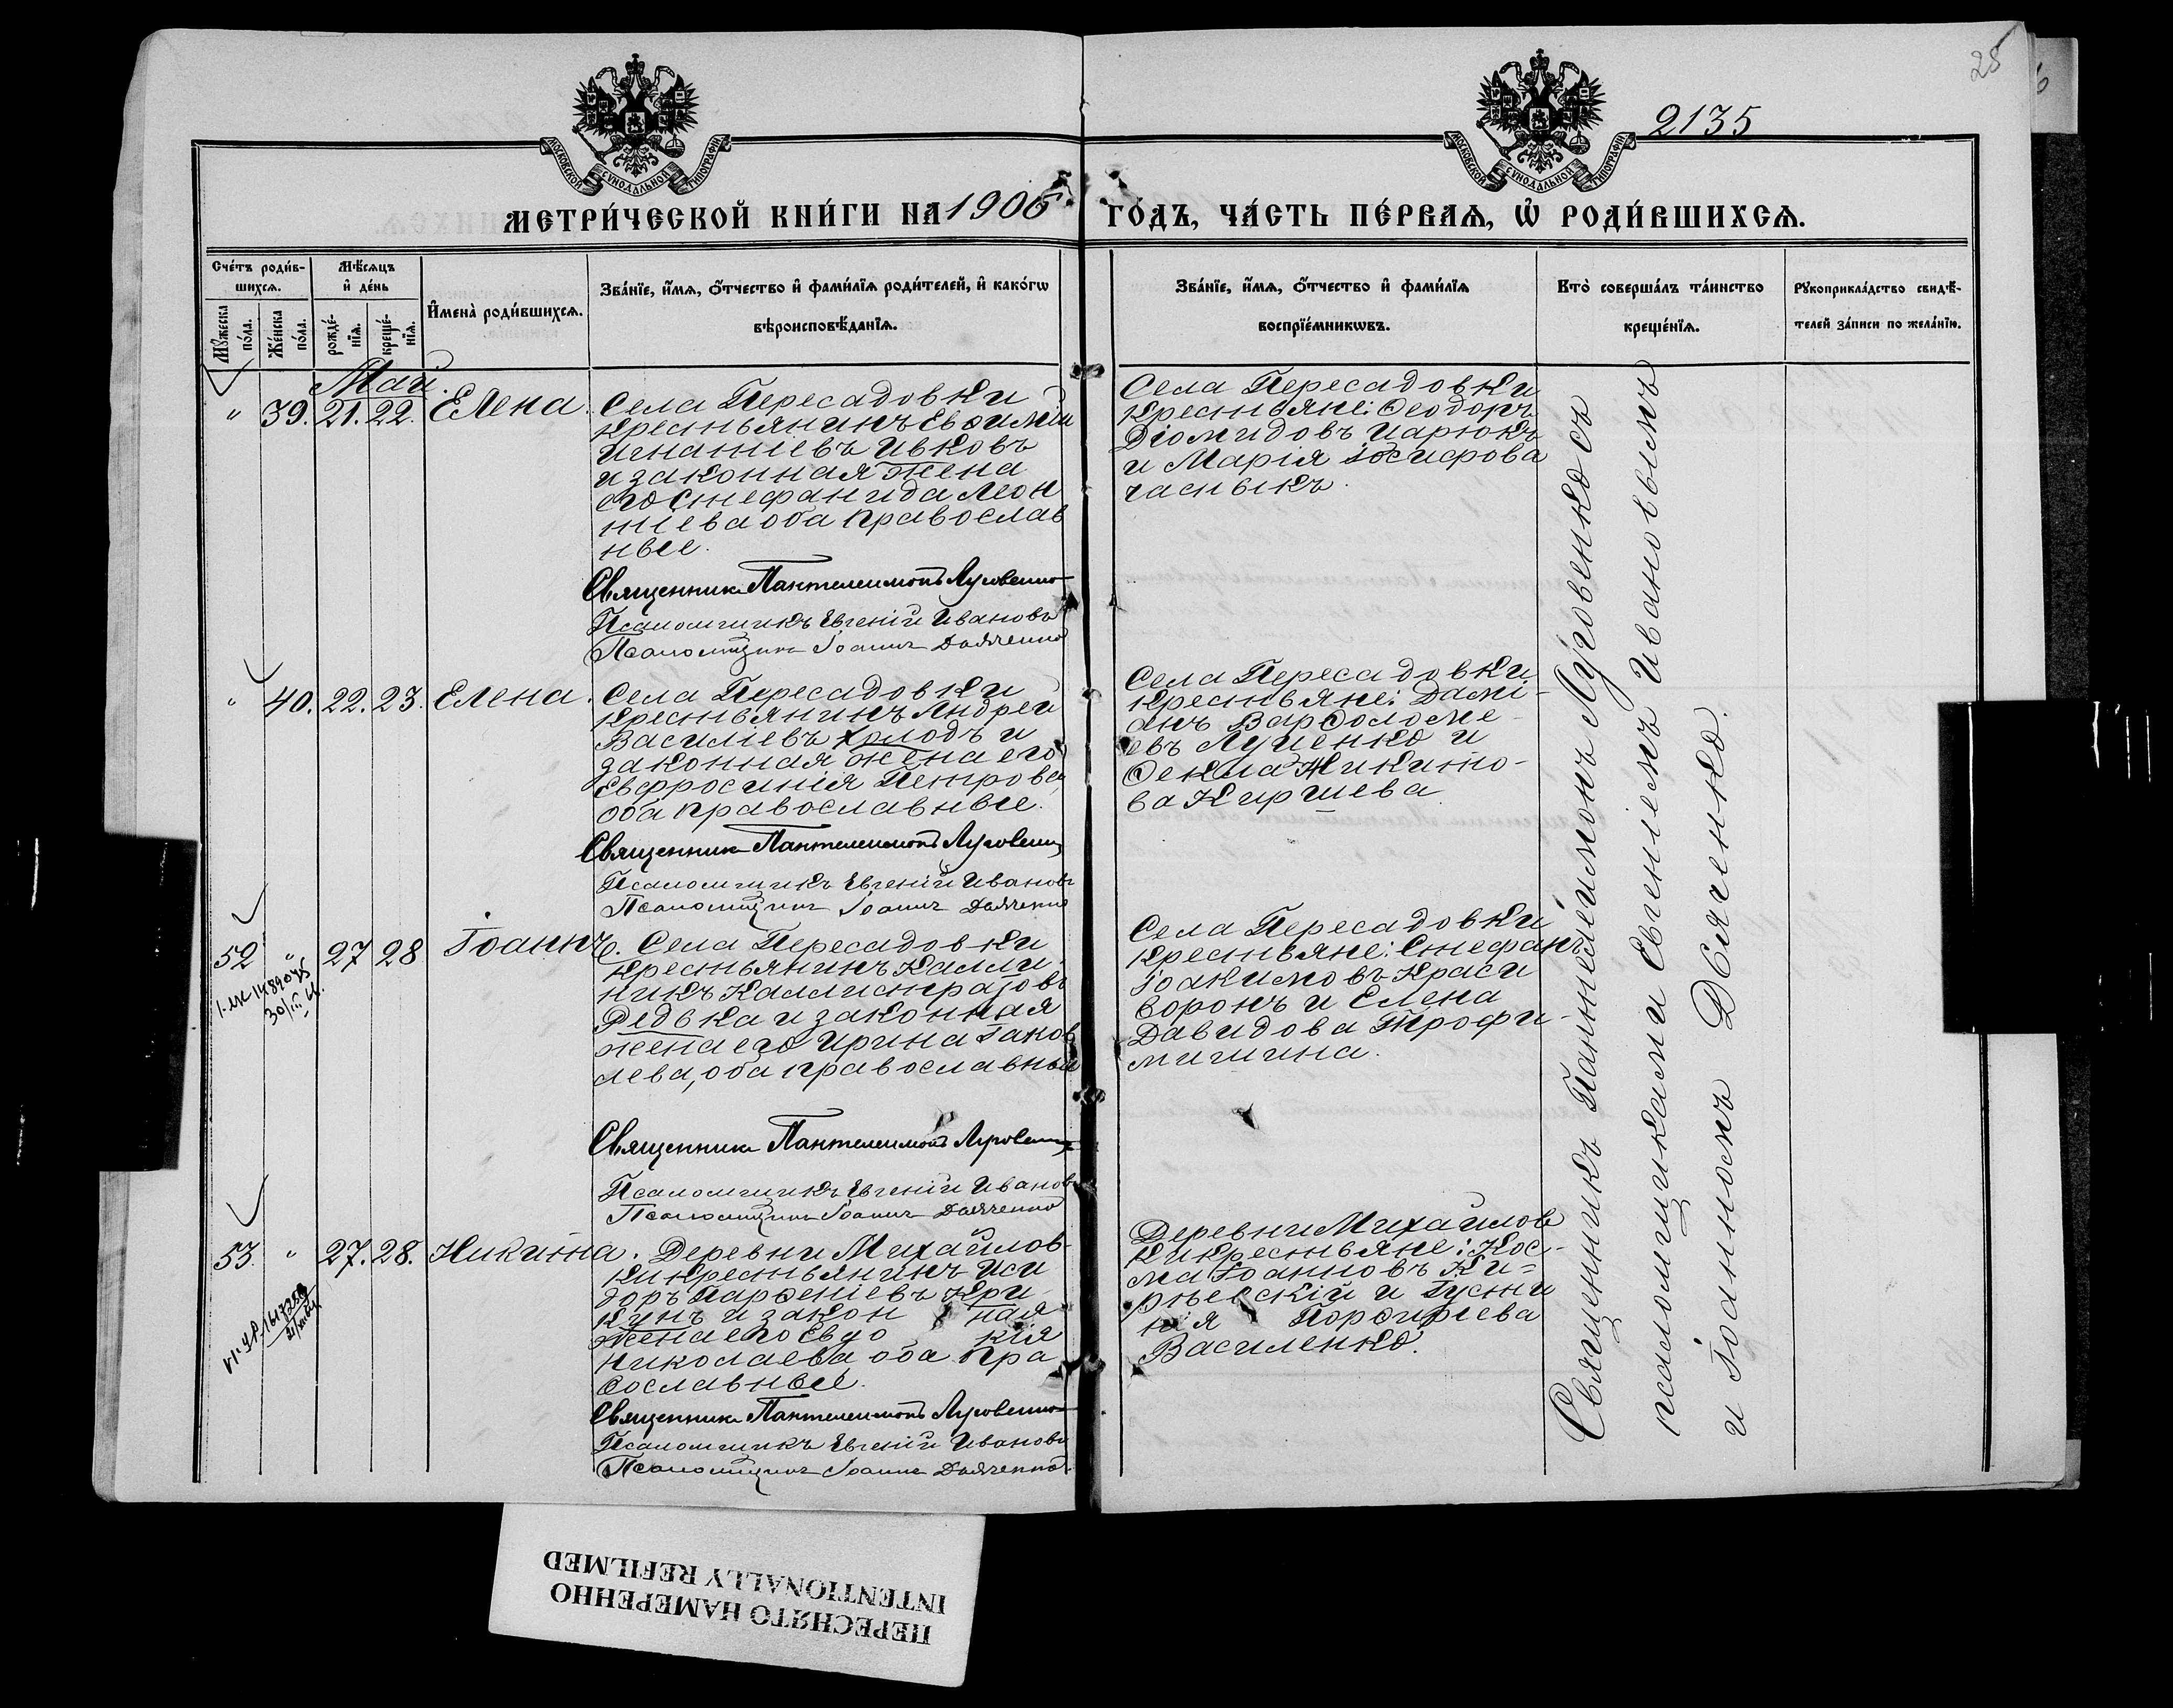 25
2135
МОСКОВСКОЙ СѴНОДАЛЬНОЙ ТИПОГРАФІИ
МОСКОВСКОЙ СѴНОДАЛЬНОЙ ТИПОГРАФІИ
МЕТРИ́ЧЕСКОЙ КНИ́ГИ НА 1906 ГО́ДЪ, ЧА́СТЬ ПЕ́РВАѦ, Ѡ҆ РОДИ́ВШИХСѦ.
Сче́тъ роди́в-
шихсѧ.
Мꙋ́жеска
по́ла.
Же́нска
по́ла.
Мѣ́сѧцъ
и҆ де́нь
рожде́-
нїѧ.
креще́-
нїѧ.
И҆мена̀ роди́вшихсѧ.
Зва́нїе, и҆́мѧ, ѻ҆́тчество и҆ фами́лїѧ роди́телей, и҆ како́гѡ
вѣроисповѣ́данїѧ.
Зва́нїе, и҆́мѧ, ѻ҆́тчество и҆ фами́лїѧ
воспрїе́мникѡвъ.
Кто̀ соверша́лъ та́инство
креще́нїѧ.
Рꙋкоприкла́дство свидѣ́-
телей за́писи по жела́нїю.
Май.
" 39. 21. 22. Елена.
Села Пересадовки
крестьянинъ Евѳимій
Игнатіевъ Ивковъ
и законная жена
его Стефанида Леон
тіева оба православ
ные.
Священникъ Пантелеимонъ Луговенко
Псаломщикъ Евгеній Ивановъ
Псаломщикъ Іоаннъ Дьяченко
Села Пересадовки
крестьяне: Ѳеодоръ
Діомидовъ Царюкъ
и Марія Іосифова
Часныкъ.
" 40. 22. 23. Елена.
Села Пересадовки
крестьянинъ Андрей
Василіевъ Холодъ и
законная жена его
Евфросинія Петрова,
оба православные.
Священникъ Пантелеимонъ Луговенко
Псаломщикъ Евгеній Ивановъ
Псаломщикъ Іоаннъ Дьяченко
Села Пересадовки
крестьяне: Дамі-
анъ Варѳоломе-
евъ Луценко и
Ѳекла Никито-
ва Киршева
52 " 27 28 Іоаннъ.
Села Пересадовки
крестьянинъ Калли-
никъ Каллистратовъ
Редька и законная
жена его Ирина Іаков
лева, оба православные
Священникъ Пантелеимонъ Луговенко
Псаломщикъ Евгеній Ивановъ
Псаломщикъ Іоаннъ Дьяченко
Села Пересадовки
крестьяне: Стефанъ
Іоакимовъ Краси
воронъ и Елена
Давидова Трофи-
мишина.
53. " 27. 28. Никита.
Деревни Михайлов-
ки крестьянинъ Иси
доръ Парѳеніевъ Кри
кунъ и закон ная
жена его Евдо кія
Николаева, оба пра
вославные.
Священникъ Пантелеимонъ Луговенко
Псаломщикъ Евгеній Ивановъ
Псаломщикъ Іоаннъ Дьяченко.
Деревни Михайлов
ки крестьяне: Кос-
ма Іоанновъ Ки-
рѣевскій и Іусти
нія Порфиріева
Василенко.
Священникъ Пантелеимонъ Луговенко съ
псаломщиками Евгеніемъ Ивановымъ
и Іоанномъ Дьяченко.
ПЕРЕСНЯТО НАМЕРЕННО
INTENTIONALLY REFILMED